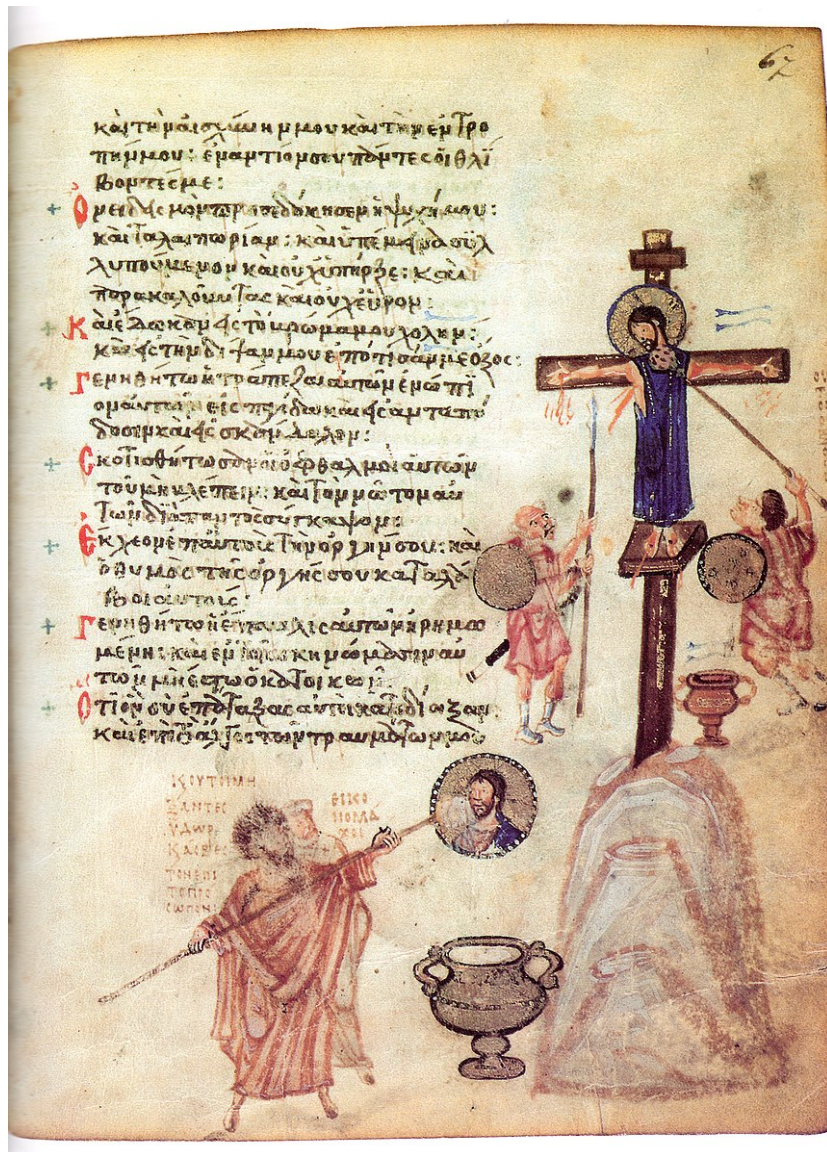 67
καὶ τὴν αἰσχύνην μου καὶ τὴν ἐντρο
πήν μου: ἐναντίον σου πάντες οἱ θλί
βοντές με:
Ὀνειδισμὸν προσεδόκησεν ἡ ψυχή μου:
καὶ ταλαιπωρίαν: καὶ ὑπέμεινα συλ
λυπούμενον καὶ οὐχ ὑπῆρξε: καὶ
παρακαλοῦντας καὶ οὐχ εὗρον:
Καὶ ἔδωκαν εἰς τὸ βρῶμα μου χολήν:
καὶ εἰς τὴν δίψαν μου ἐπότισάν με ὄξος:
Γενηθήτω ἡ τράπεζα αὐτῶν ἐνώπι
ον αὐτῶν εἰς παγίδα καὶ εἰς ἀνταπό
δοσιν καὶ εἰς σκάνδαλον:
Σκοτισθήτωσαν οἱ ὀφθαλμοὶ αὐτῶν
τοῦ μὴ βλέπειν: καὶ τὸν νῶτον αὐ
τῶν διὰ παντὸς σύγκαψον:
Ἔκχεον ἐπ' αὐτοὺς τὴν ὀργήν σου: καὶ
ὁ θυμὸς τῆς ὀργῆς σου καταλά
βοι αὐτούς:
Γενηθήτω ἡ ἔπαυλις αὐτῶν ἠρημω
μένη: καὶ ἐν τοῖς σκηνώμασιν αὐ
τῶν μὴ ἔστω ὁ κατοικῶν:
Ὅτι ὃν σὺ ἐπάταξας αὐτοὶ κατεδίωξαν:
καὶ ἐπὶ τὸ ἄλγος τῶν τραυμάτων μου
ΞΑΝΤΕΣ
ΥΔΩΡ
ΕΙΚΟ
ΝΟΜΑ
ΧΟΙ